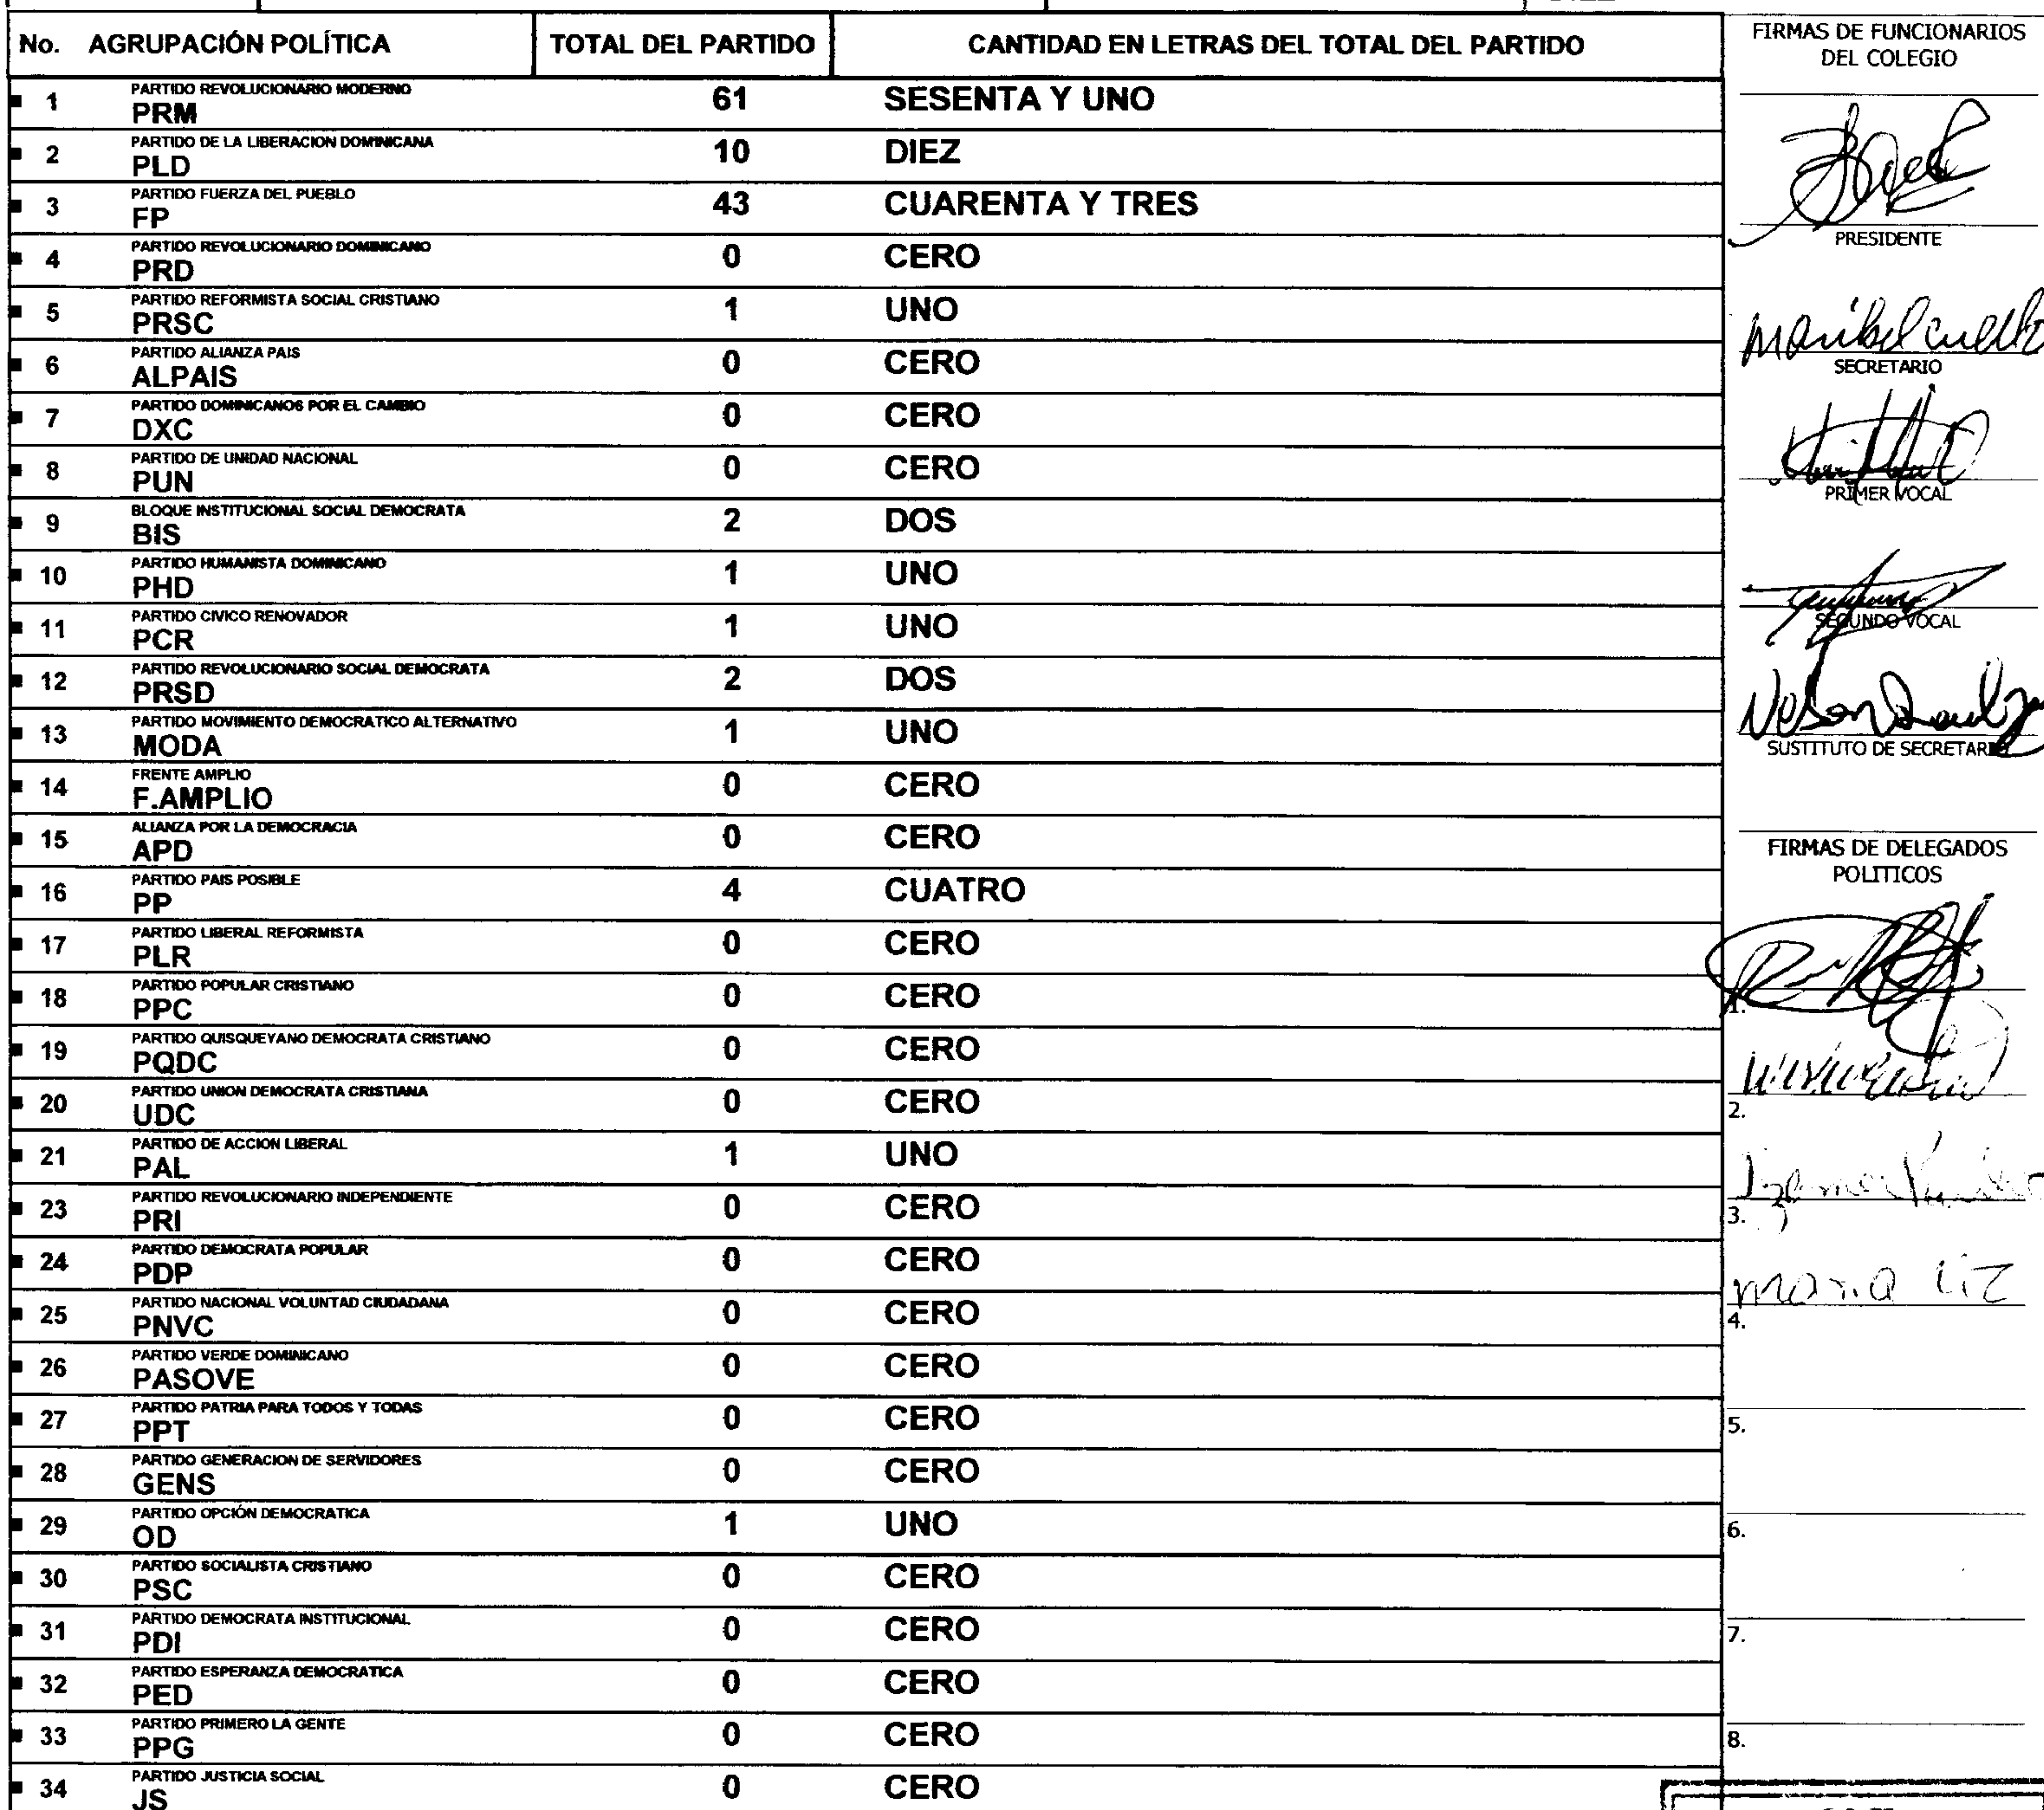 No. AGRUPACIÓN POLÍTICA TOTAL DEL PARTIDO CANTIDAD EN LETRAS DEL TOTAL DEL PARTIDO
1 PARTIDO REVOLUCIONARIO MODERNO
PRM 61 SESENTA Y UNO
2 PARTIDO DE LA LIBERACION DOMINICANA
PLD 10 DIEZ
3 PARTIDO FUERZA DEL PUEBLO
FP 43 CUARENTA Y TRES
4 PARTIDO REVOLUCIONARIO DOMINICANO
PRD 0 CERO
5 PARTIDO REFORMISTA SOCIAL CRISTIANO
PRSC 1 UNO
6 PARTIDO ALIANZA PAIS
ALPAIS 0 CERO
7 PARTIDO DOMINICANOS POR EL CAMBIO
DXC 0 CERO
8 PARTIDO DE UNIDAD NACIONAL
PUN 0 CERO
9 BLOQUE INSTITUCIONAL SOCIAL DEMOCRATA
BIS 2 DOS
10 PARTIDO HUMANISTA DOMINICANO
PHD 1 UNO
11 PARTIDO CIVICO RENOVADOR
PCR 1 UNO
12 PARTIDO REVOLUCIONARIO SOCIAL DEMOCRATA
PRSD 2 DOS
13 PARTIDO MOVIMIENTO DEMOCRATICO ALTERNATIVO
MODA 1 UNO
14 FRENTE AMPLIO
F.AMPLIO 0 CERO
15 ALIANZA POR LA DEMOCRACIA
APD 0 CERO
16 PARTIDO PAIS POSIBLE
PP 4 CUATRO
17 PARTIDO LIBERAL REFORMISTA
PLR 0 CERO
18 PARTIDO POPULAR CRISTIANO
PPC 0 CERO
19 PARTIDO QUISQUEYANO DEMOCRATA CRISTIANO
PQDC 0 CERO
20 PARTIDO UNION DEMOCRATA CRISTIANA
UDC 0 CERO
21 PARTIDO DE ACCION LIBERAL
PAL 1 UNO
23 PARTIDO REVOLUCIONARIO INDEPENDIENTE
PRI 0 CERO
24 PARTIDO DEMOCRATA POPULAR
PDP 0 CERO
25 PARTIDO NACIONAL VOLUNTAD CIUDADANA
PNVC 0 CERO
26 PARTIDO VERDE DOMINICANO
PASOVE 0 CERO
27 PARTIDO PATRIA PARA TODOS Y TODAS
PPT 0 CERO
28 PARTIDO GENERACION DE SERVIDORES
GENS 0 CERO
29 PARTIDO OPCIÓN DEMOCRATICA
OD 1 UNO
30 PARTIDO SOCIALISTA CRISTIANO
PSC 0 CERO
31 PARTIDO DEMOCRATA INSTITUCIONAL
PDI 0 CERO
32 PARTIDO ESPERANZA DEMOCRATICA
PED 0 CERO
33 PARTIDO PRIMERO LA GENTE
PPG 0 CERO
34 PARTIDO JUSTICIA SOCIAL
JS 0 CERO
FIRMAS DE FUNCIONARIOS
DEL COLEGIO
PRESIDENTE
Maribel Cuello
SECRETARIO
PRIMER VOCAL
SEGUNDO VOCAL
Nelson
SUSTITUTO DE SECRETARIO
FIRMAS DE DELEGADOS
POLITICOS
1.
2.
3.
maria liz
4.
5.
6.
7.
8.